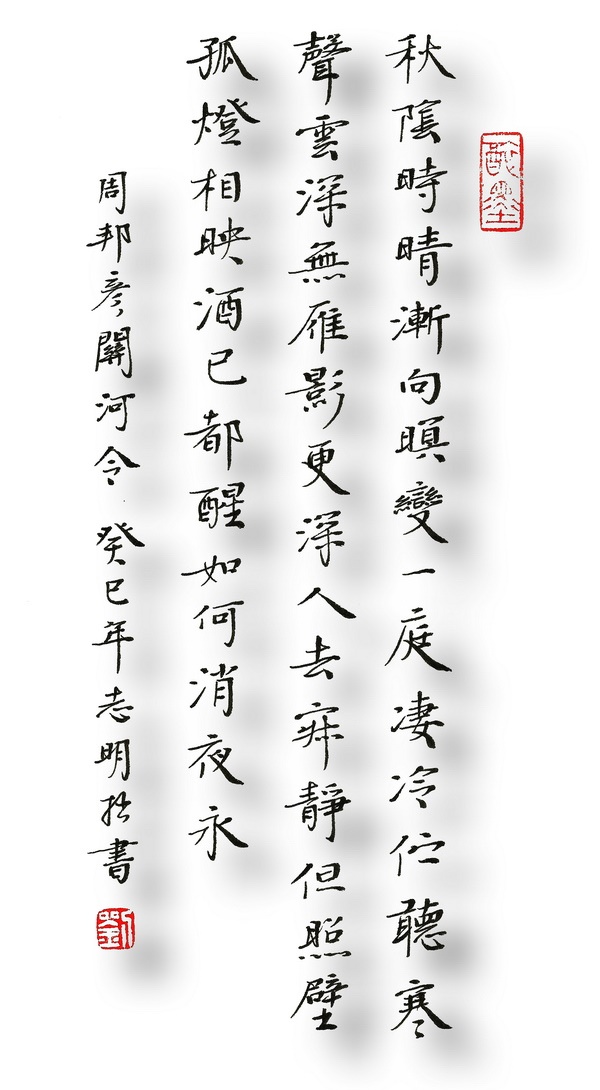 酣墨
秋陰時晴漸向暝變一庭淒冷佇聽寒
聲雲深無雁影更深人去寂靜但照壁
孤燈相映酒已都醒如何消夜永
周邦彥關河令 癸巳年志明拙書
劉